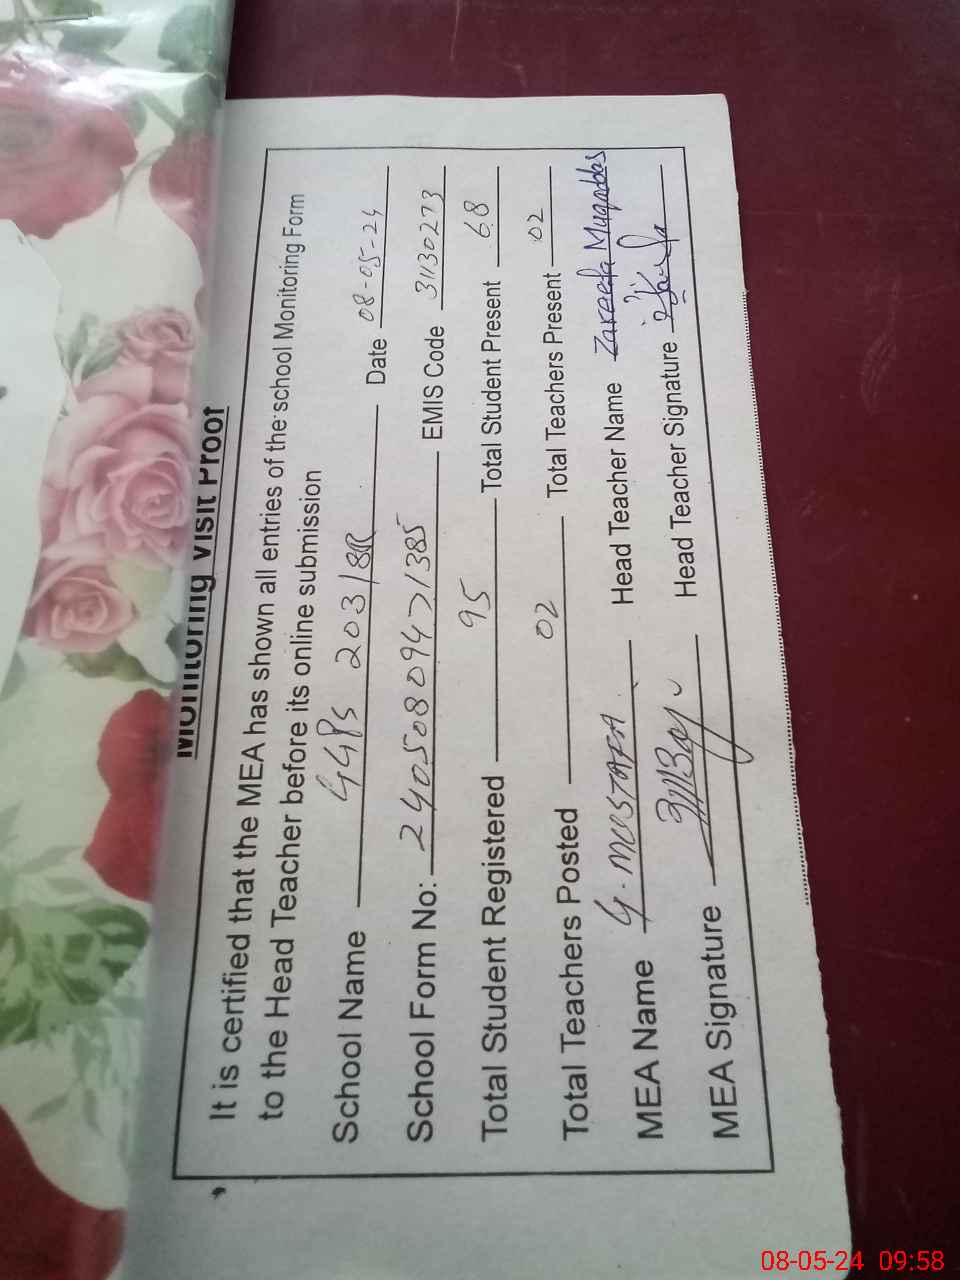 Monitoring Visit Proof
It is certified that the MEA has shown all entries of the school Monitoring Form
to the Head Teacher before its online submission
School Name GGPS 203/8R Date 08-05-24
School Form No: 24050809471385 EMIS Code 31130273
Total Student Registered 95 Total Student Present 68
Total Teachers Posted 02 Total Teachers Present 02
MEA Name G. MUSTAFA Head Teacher Name Zareefa Muqaddas
MEA Signature Head Teacher Signature
08-05-24 09:58